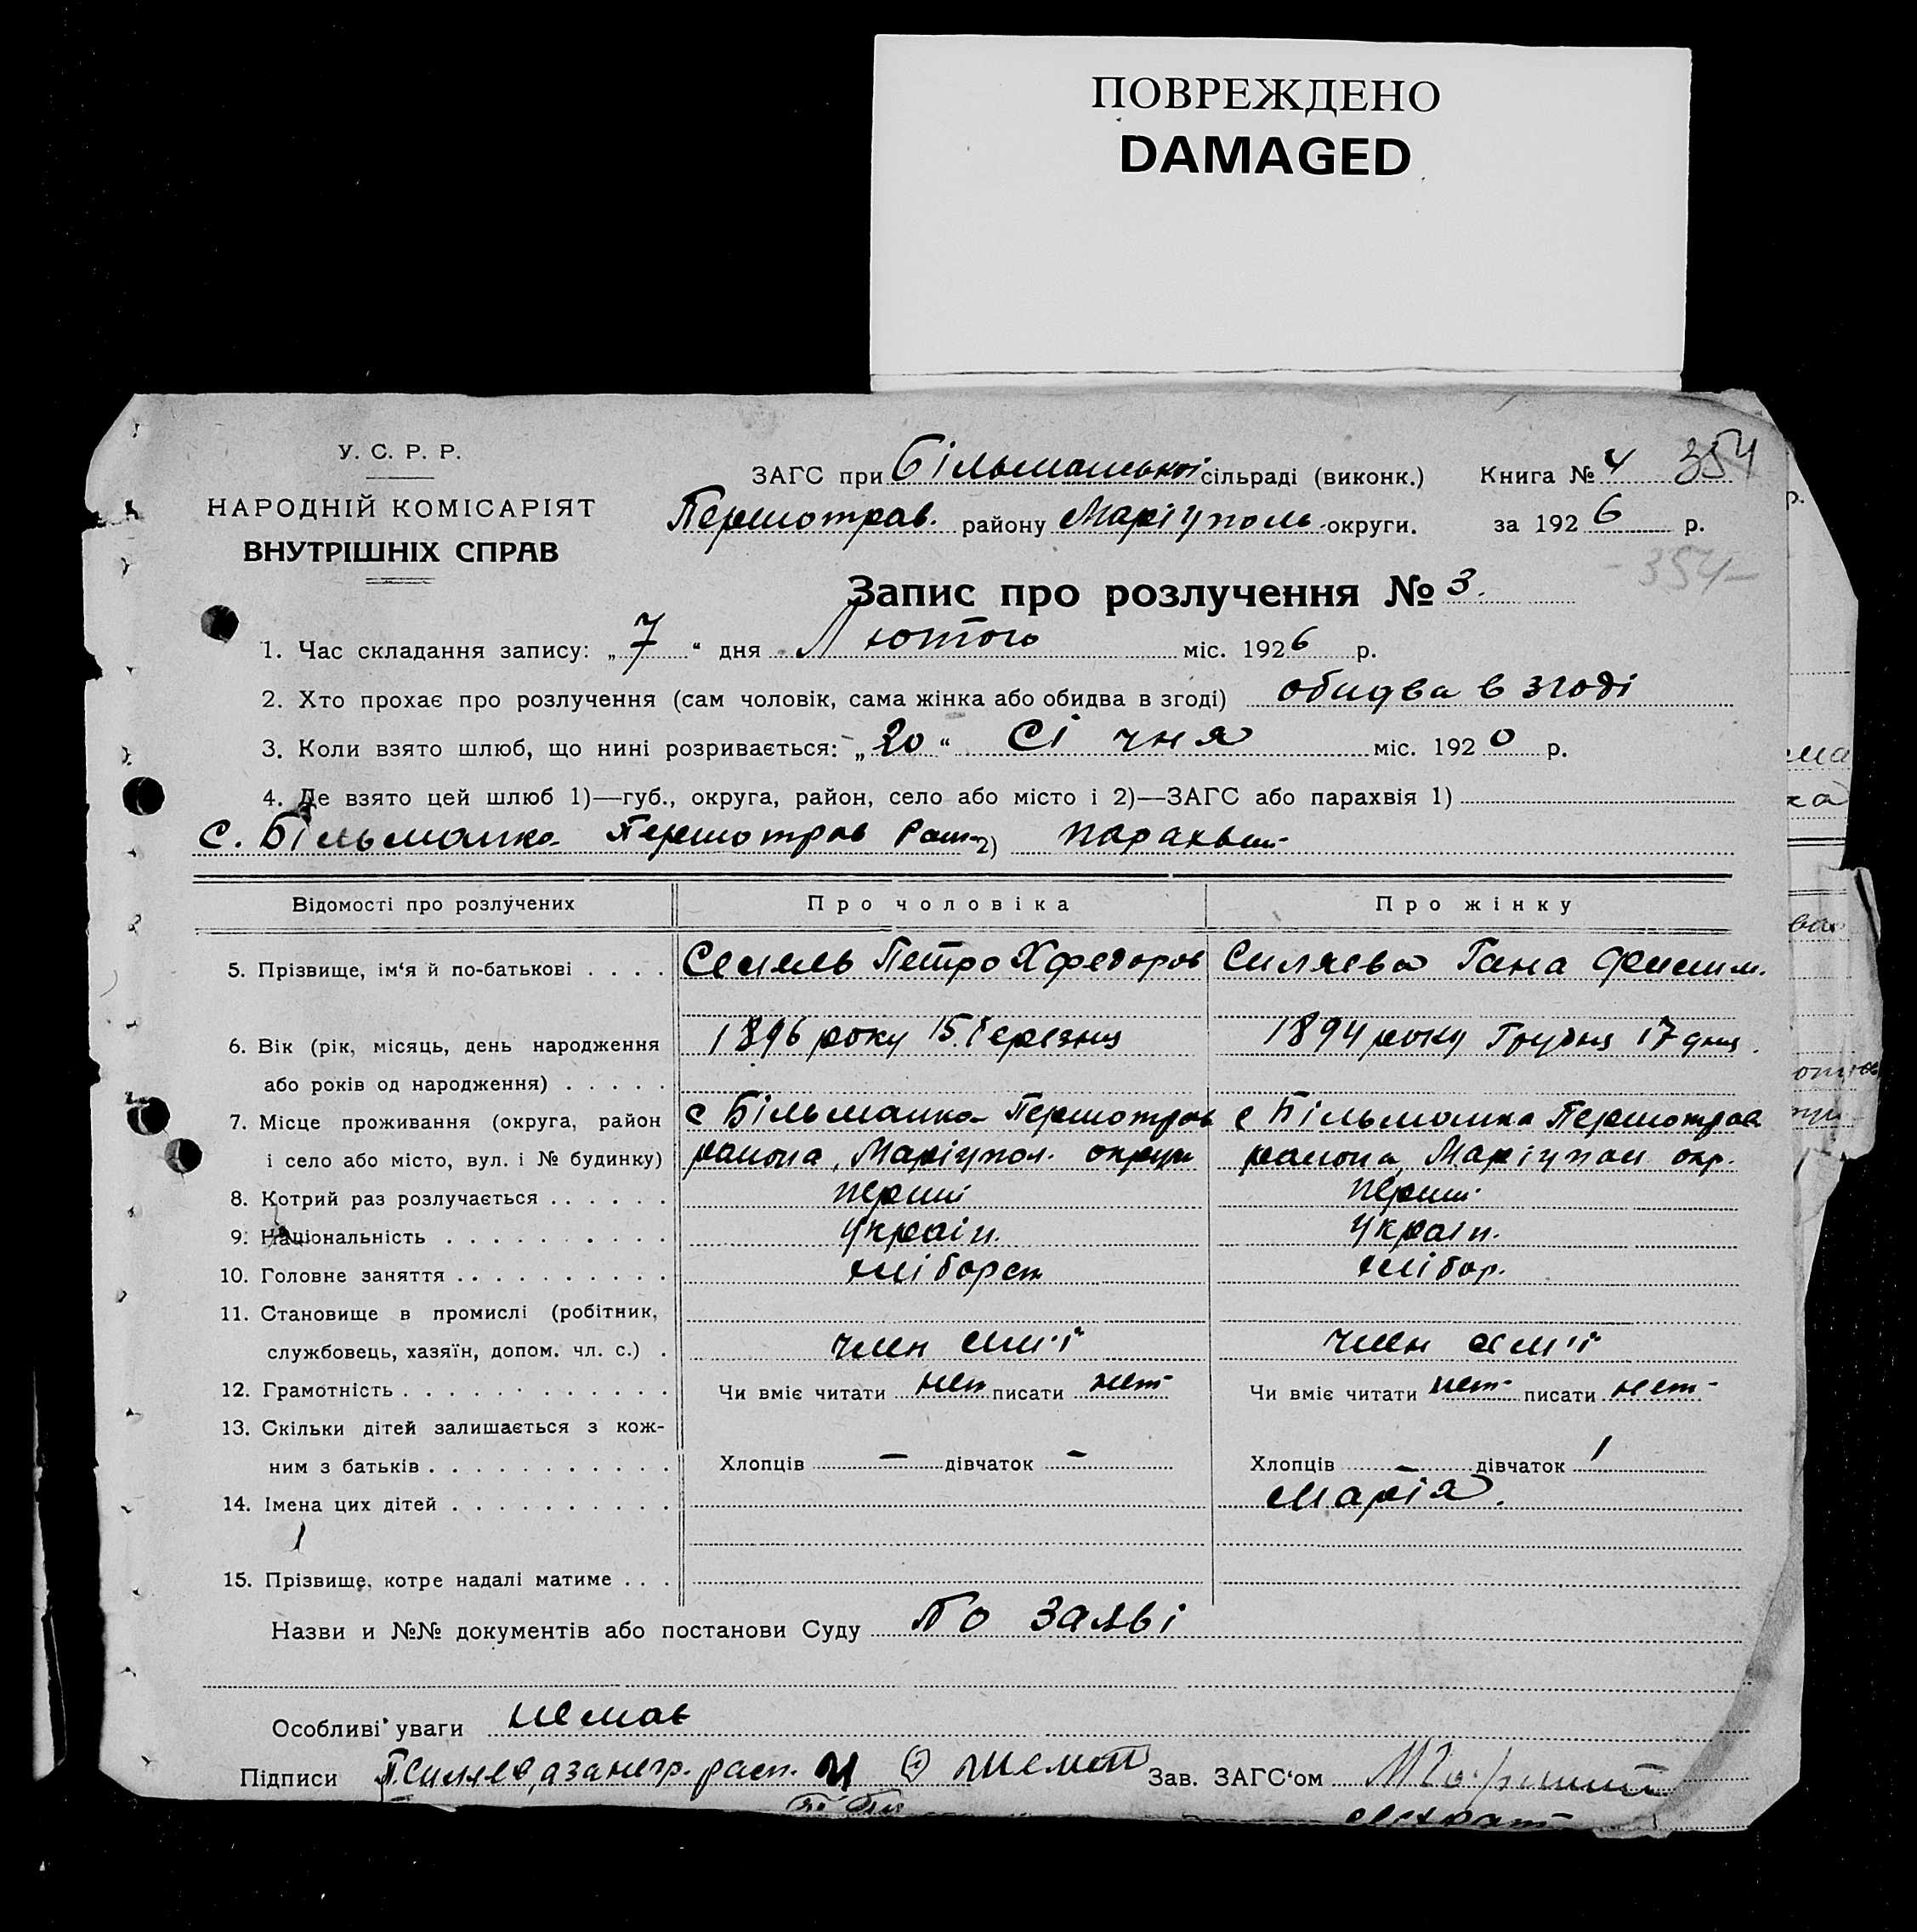 ПОВРЕЖДЕНО
DAMAGED
354
У. С. Р. Р.
НАРОДНІЙ КОМІСАРІЯТ
ВНУТРІШНІХ СПРАВ
ЗАГС при Більманській сільраді (виконк.) Книга № 4
Першотрав. району Маріуполь. округи. за 1926 р.
- 354 -
Запис про розлучення № 3.
1. Час складання запису: „7“ дня Лютого міс. 1926 р.
2. Хто прохає про розлучення (сам чоловік, сама жінка або обидва в згоді) обидва в згоді
3. Коли взято шлюб, що нині розривається: „20“ Січня міс. 1920 р.
4. Де взято цей шлюб 1)—губ., округа, район, село або місто і 2)—ЗАГС або парахвія 1)
с. Більманка Першотрав Рай 2) парахвии
Відомості про розлучених Про чоловіка Про жінку
5. Прізвище, ім‘я й по-батькові . . . . Петро Силяева Гана
6. Вік (рік, місяць, день народження 1896 року 15 Березня 1894 року Грудня 17 дня.
або років од народження) . . . . .
7. Місце проживання (округа, район с Більманка Першотрав с Більманка Першотрав
і село або місто, вул. і № будинку) района, Маріупол. округи района, Маріупол окр.
8. Котрий раз розлучається . . . . . . перший перший
9. Національність . . . . . . . . . . Україн. Україн.
10. Головне заняття . . . . . . . . . . хліборст хлібор.
11. Становище в промислі (робітник,
службовець, хазяїн, допом. чл. с.) . член сем'ї член сем'ї
12. Грамотність . . . . . . . . . . . . Чи вміє читати нет писати нет Чи вміє читати нет писати нет
13. Скільки дітей залишається з кож-
ним з батьків . . . . . . . . . . . Хлопців – дівчаток – Хлопців дівчаток 1
14. Імена цих дітей . . . . . . . . . . Марія.
15. Прізвище, котре надалі матиме . . .
Назви и №№ документів або постанови Суду По заяві
Особливі уваги немає
Підписи П. Силяев, а за негр. расп. Зав. ЗАГС‘ом